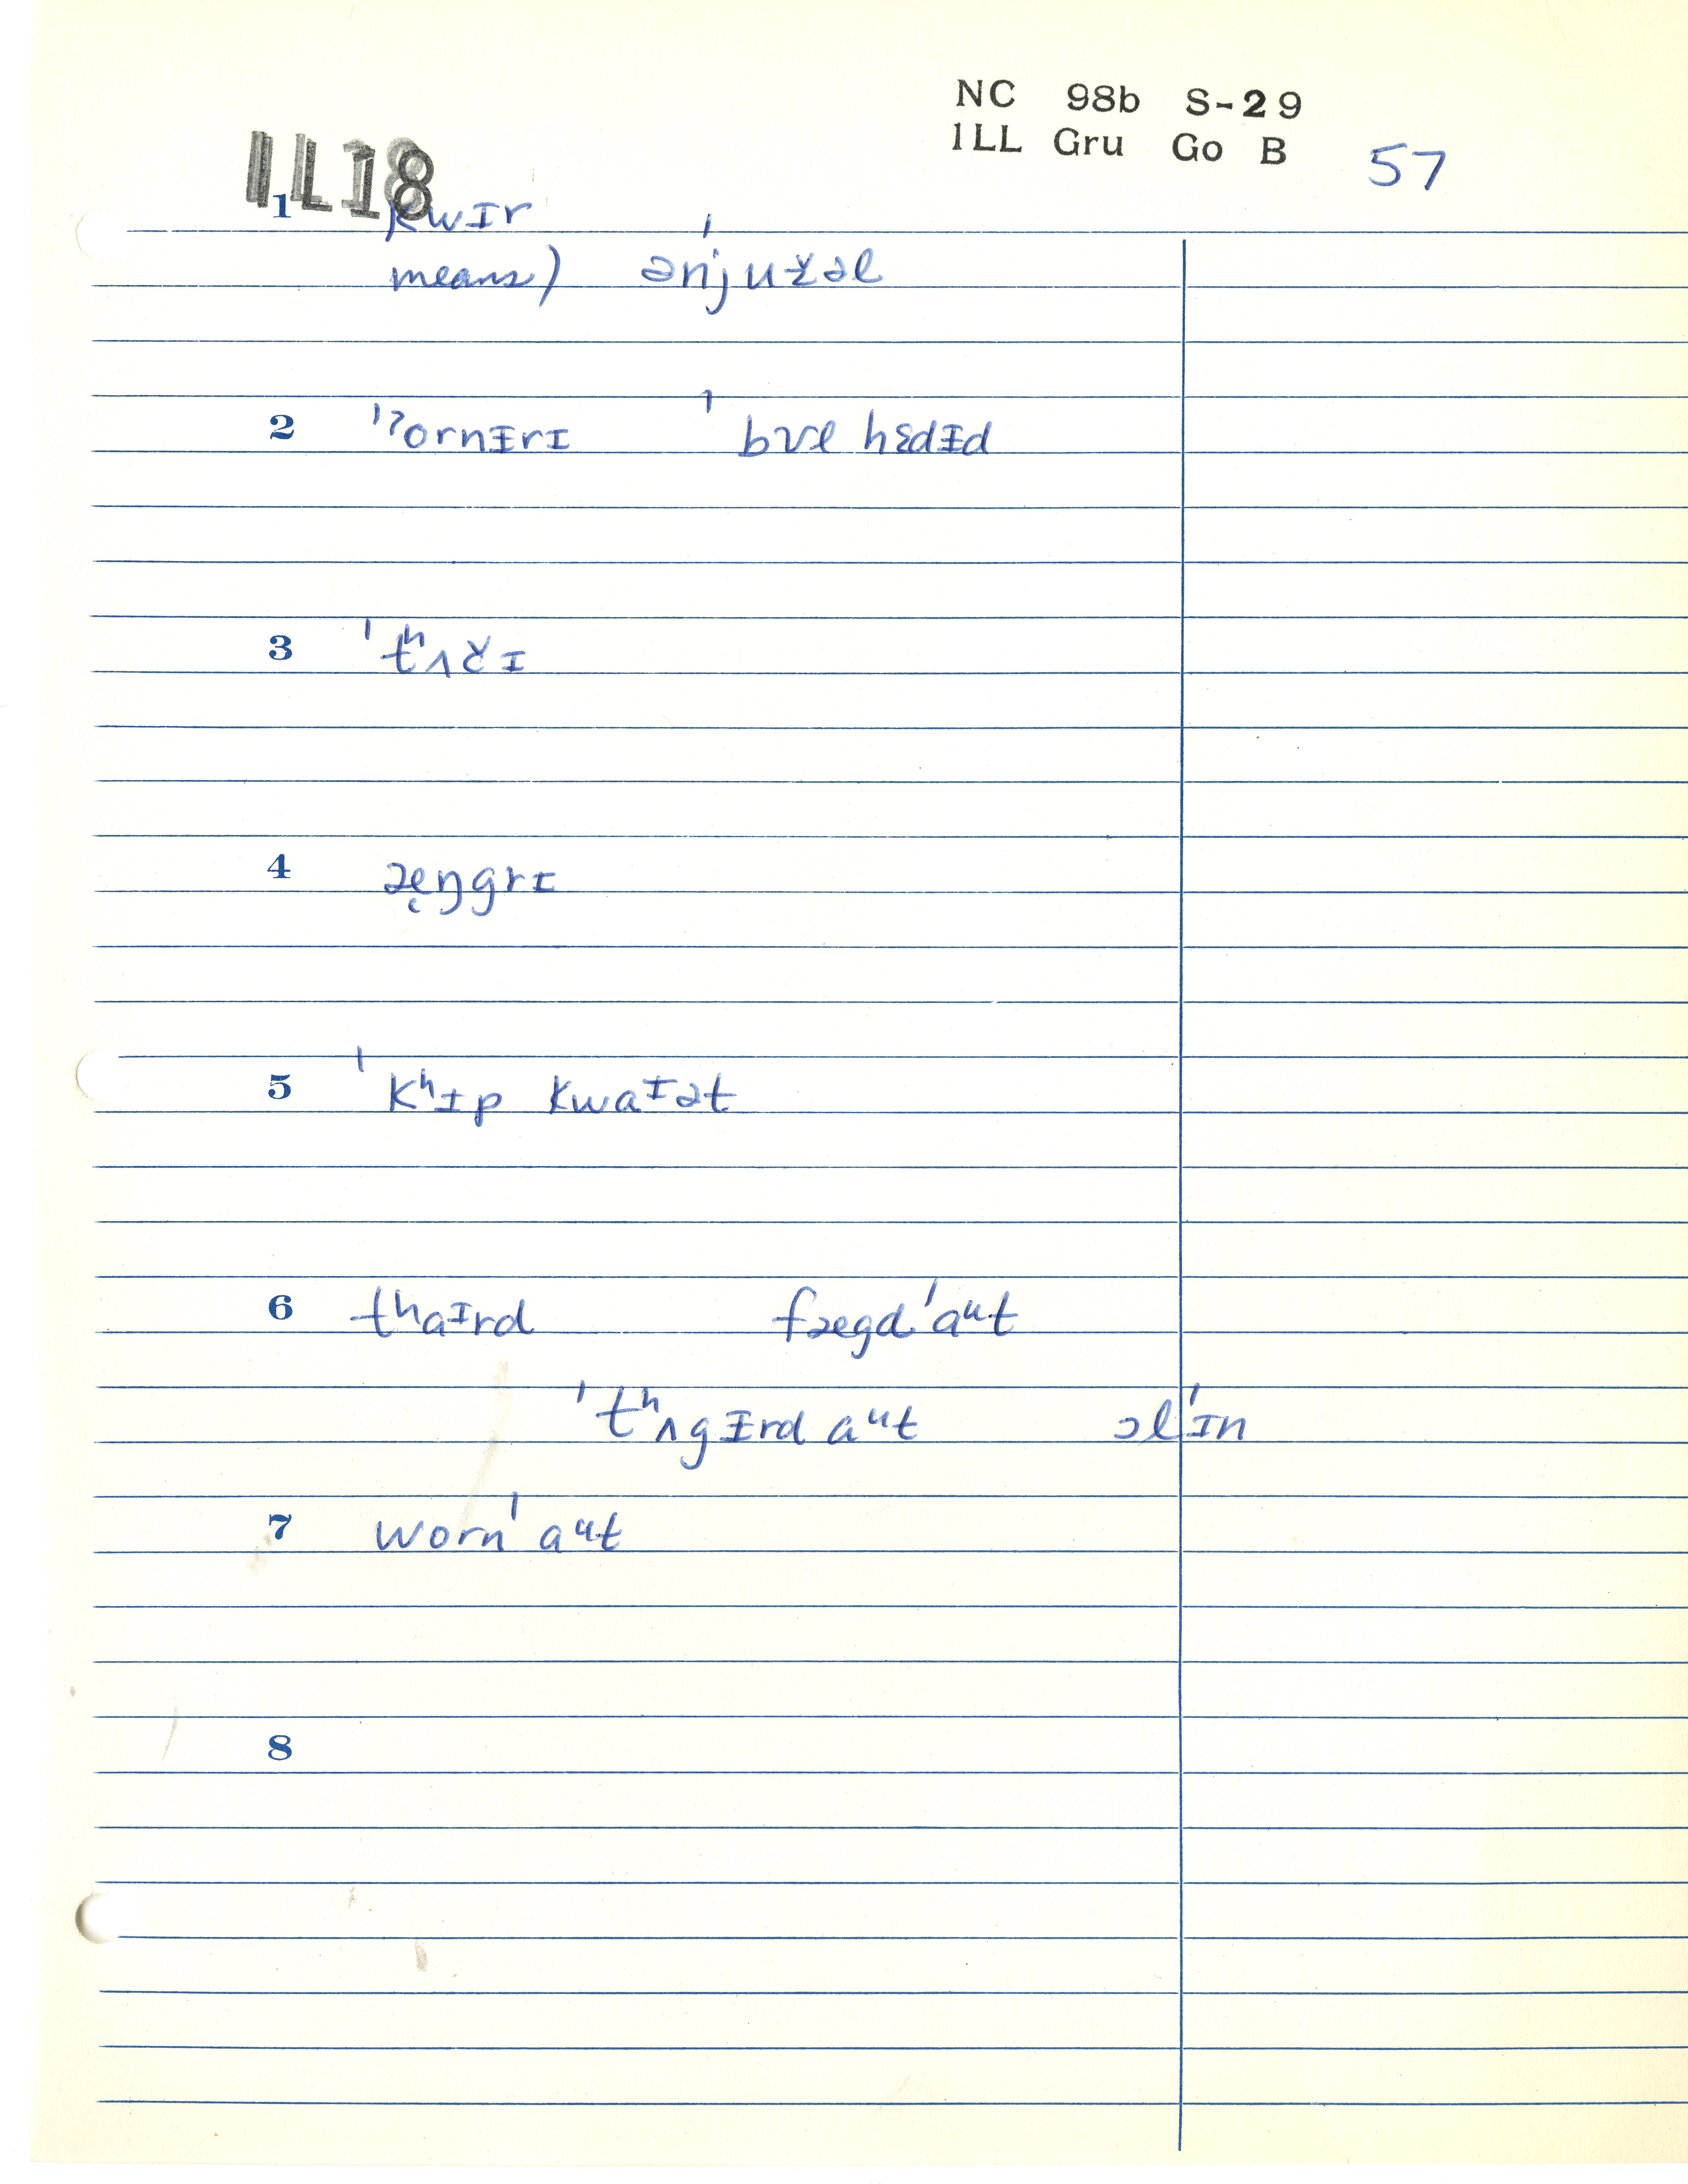 NC 98b S-29
ILL Gru Go B 57
IL18
1 kwɪr
means) ənˈjužəl
2 ˈʔornɪ̵rɪ ˈbʊl hɛdɪ̵d
3 ˈtʰʌčɪ
4 æŋgrɪ
5 ˈkʰɪp kwaᴵət
6 tʰaɪrd fægdˈaᵘt
ˈtʰʌgɪ̵rd aᵘt ɔlˈɪn
7 wornˈaᵘt
8